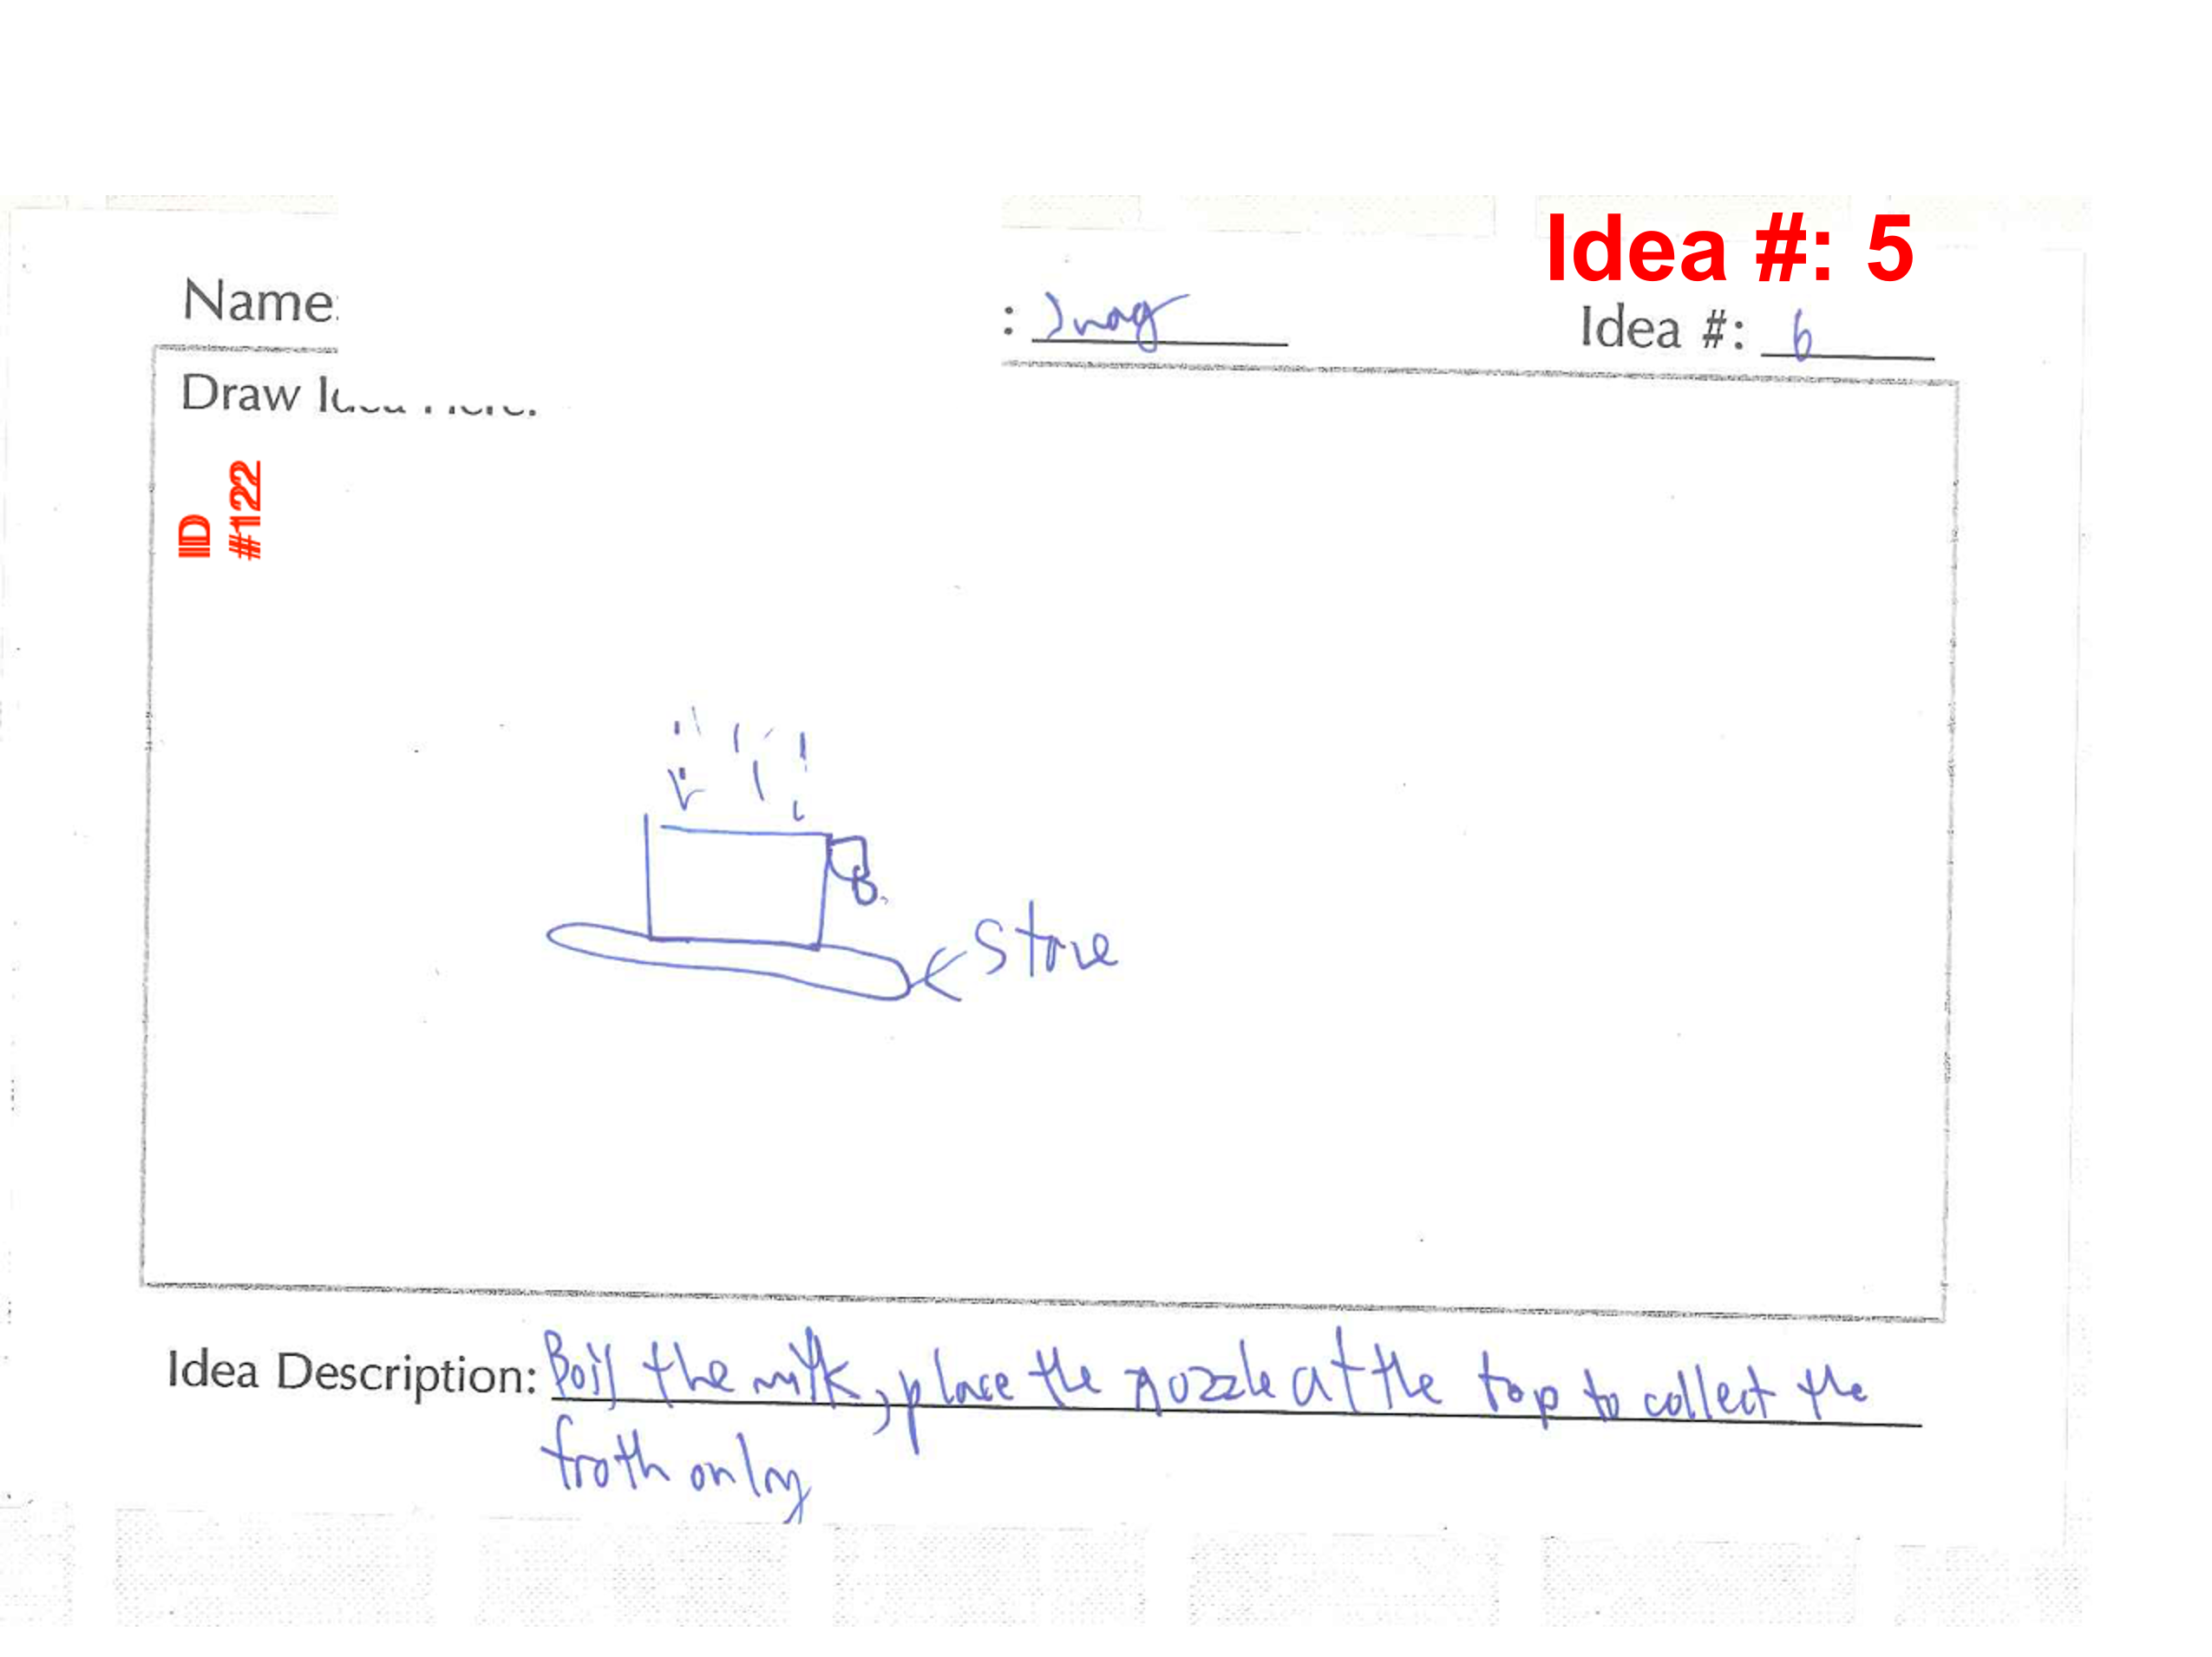 Idea #: 5
Name:
Idea #: 6
Draw
ID
#122
Stove
Idea Description: Boil the milk, place the nozzle at the top to collect the
froth only